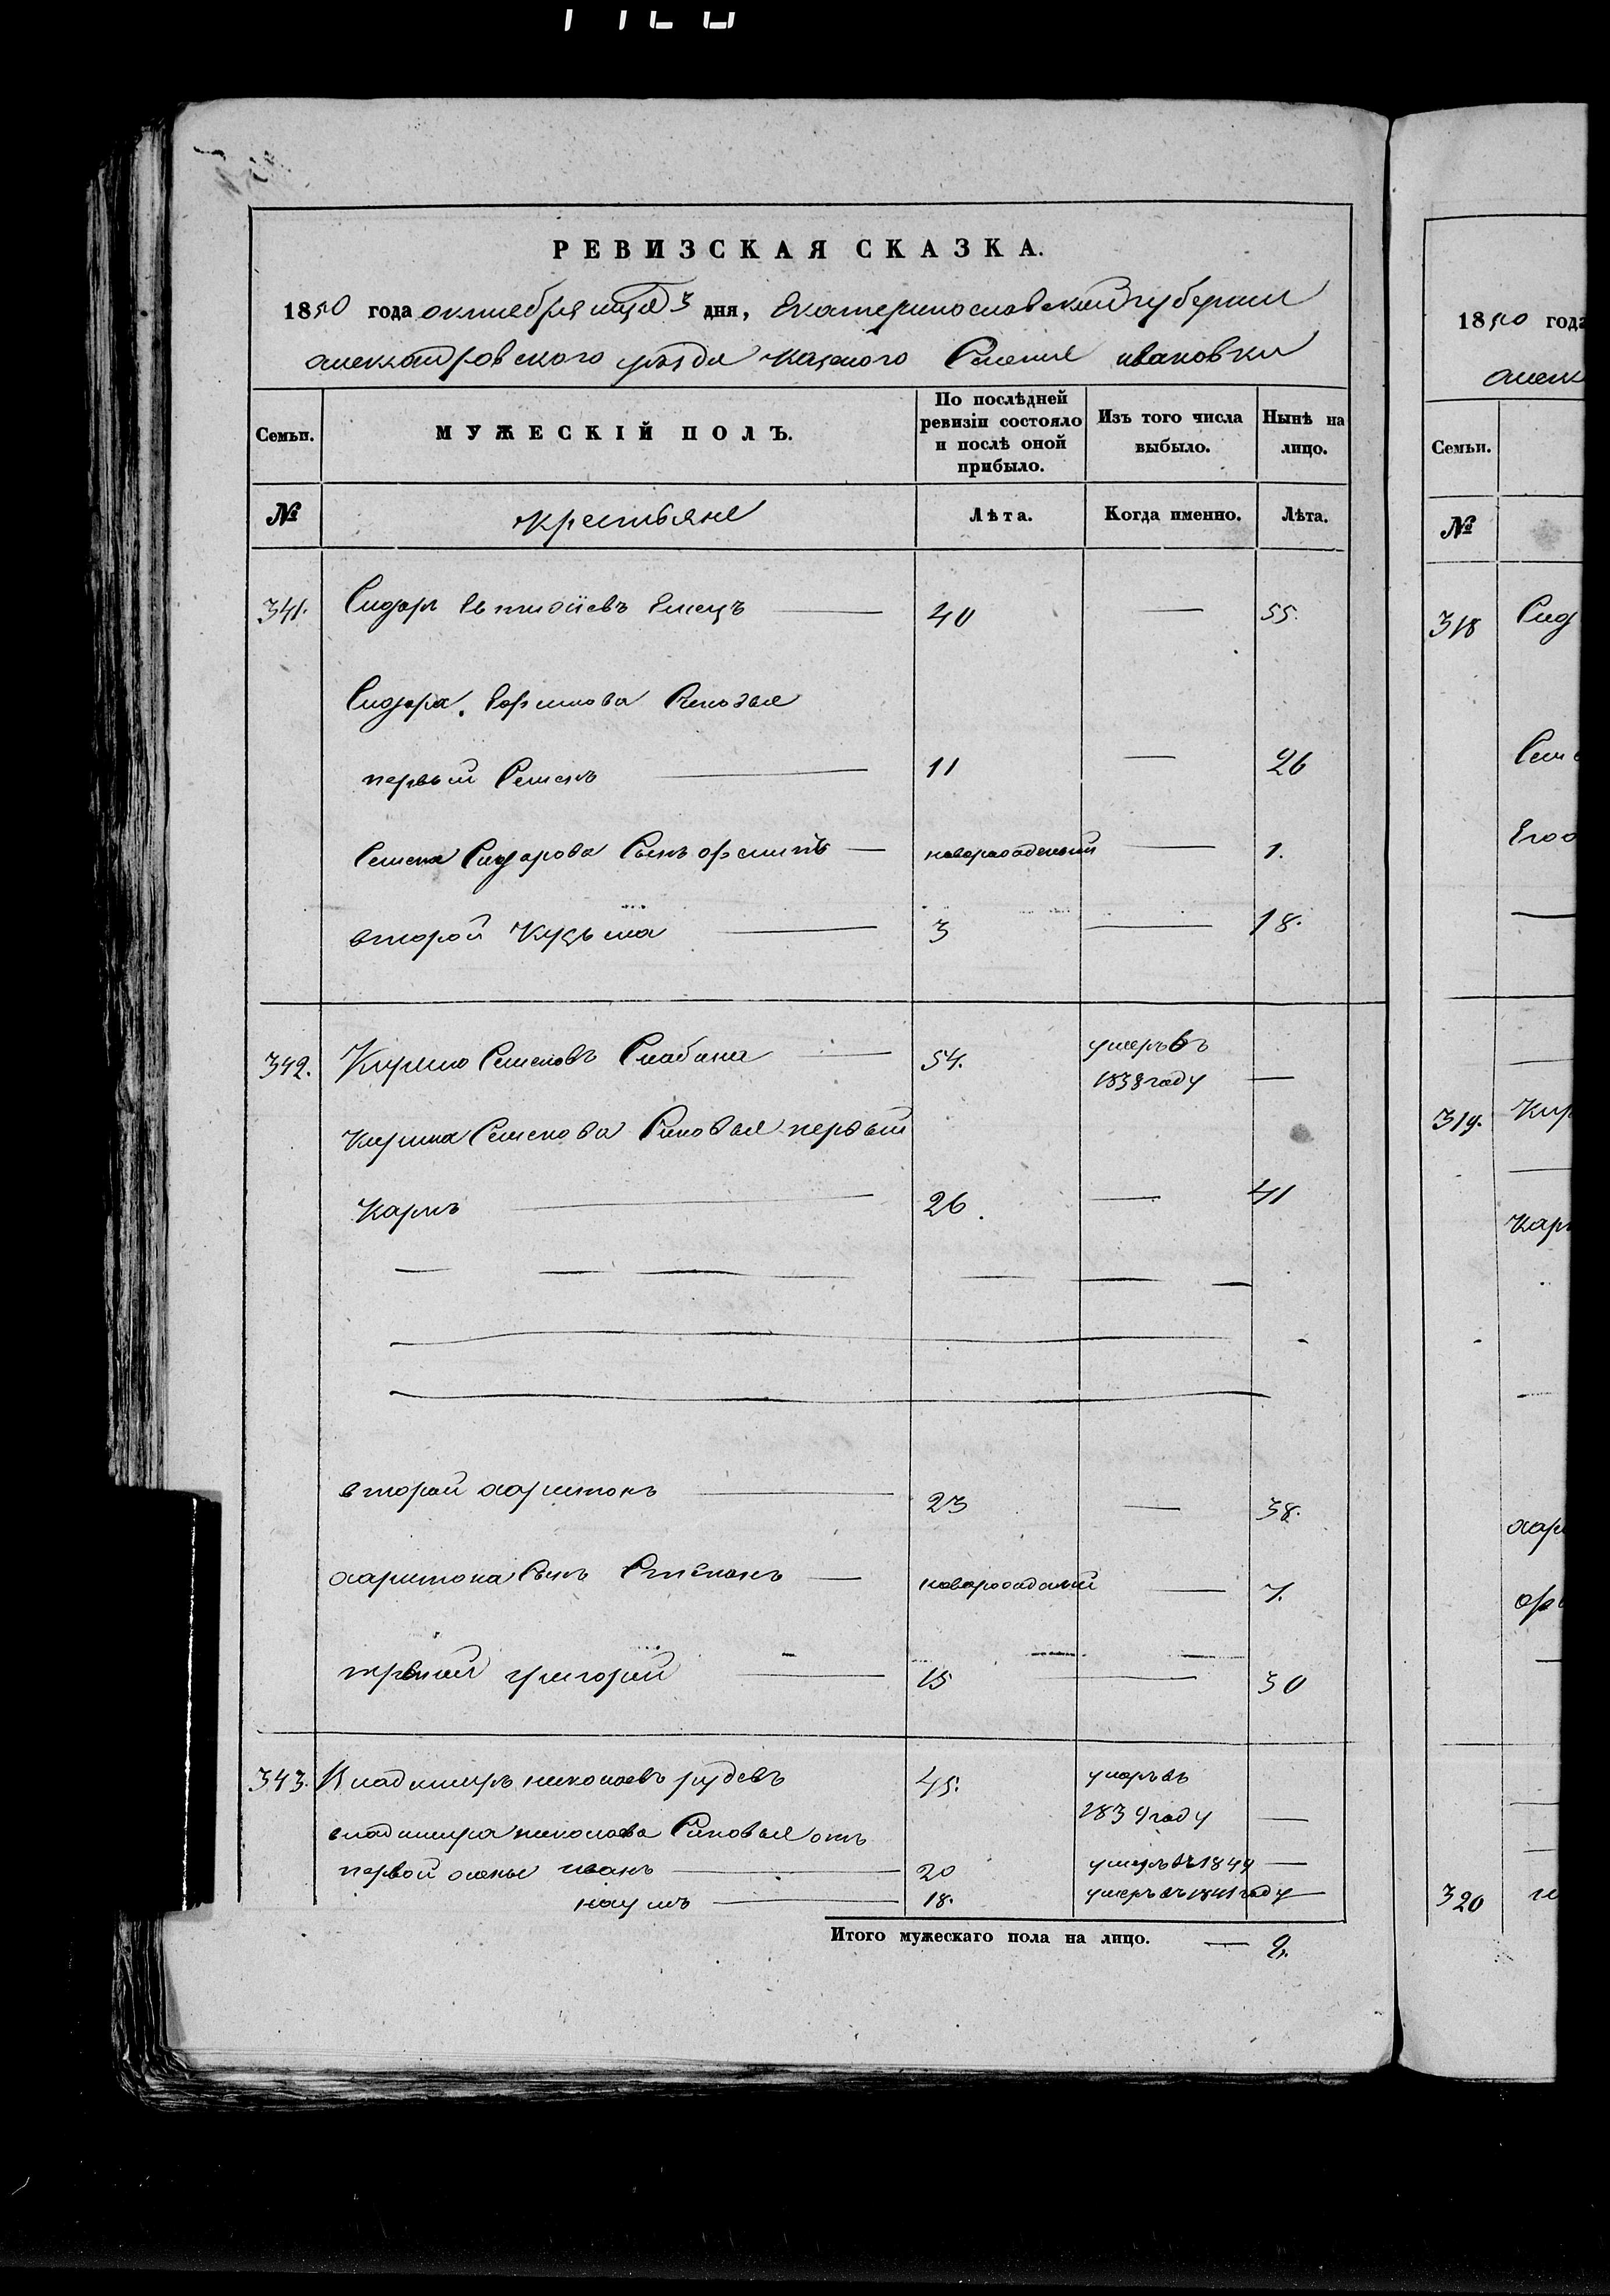 РЕВИЗСКАЯ СКАЗКА.
1850 года октября мца 3 дня, Екатеринославской губернии
александровского уезда казеного Селения ивановки
Семьи.
МУЖЕСКІЙ ПОЛЪ.
По послѣдней ревизіи состояло и послѣ оной прибыло.
Изъ того числа выбыло.
Нынѣ на лицо.
№ крестьяне Лѣта. Когда именно. Лѣта.
341. Сидоръ — 40 — 55.
Сидора Синовья
первый Семенъ — 11 — 26
Семена Сидорова Сынъ — новорожденый — 1.
второй Кузьма — 3 — 18.
342. Кирило Семеновъ — 54. умеръ въ
1838 году —
Кирила Семенова Синовья первый
Карпъ — 26. — 41
второй харитонъ — 23 — 38.
харитона Сынъ Степанъ — новорожденый — 7.
третий григорий — 15 — 30
343. Владимиръ николаевъ рудевъ 45. умеръ въ
1839 году —
владимира николаева Синовья отъ
первой жены иванъ — 20 умеръ въ 1849 —
наумъ — 18. умеръ въ 1841 году —
Итого мужескаго пола на лицо. — 8.
1850 года
алек
Семьи.
№
318 Сид
Сем
319. Кир
Кар
хар
320